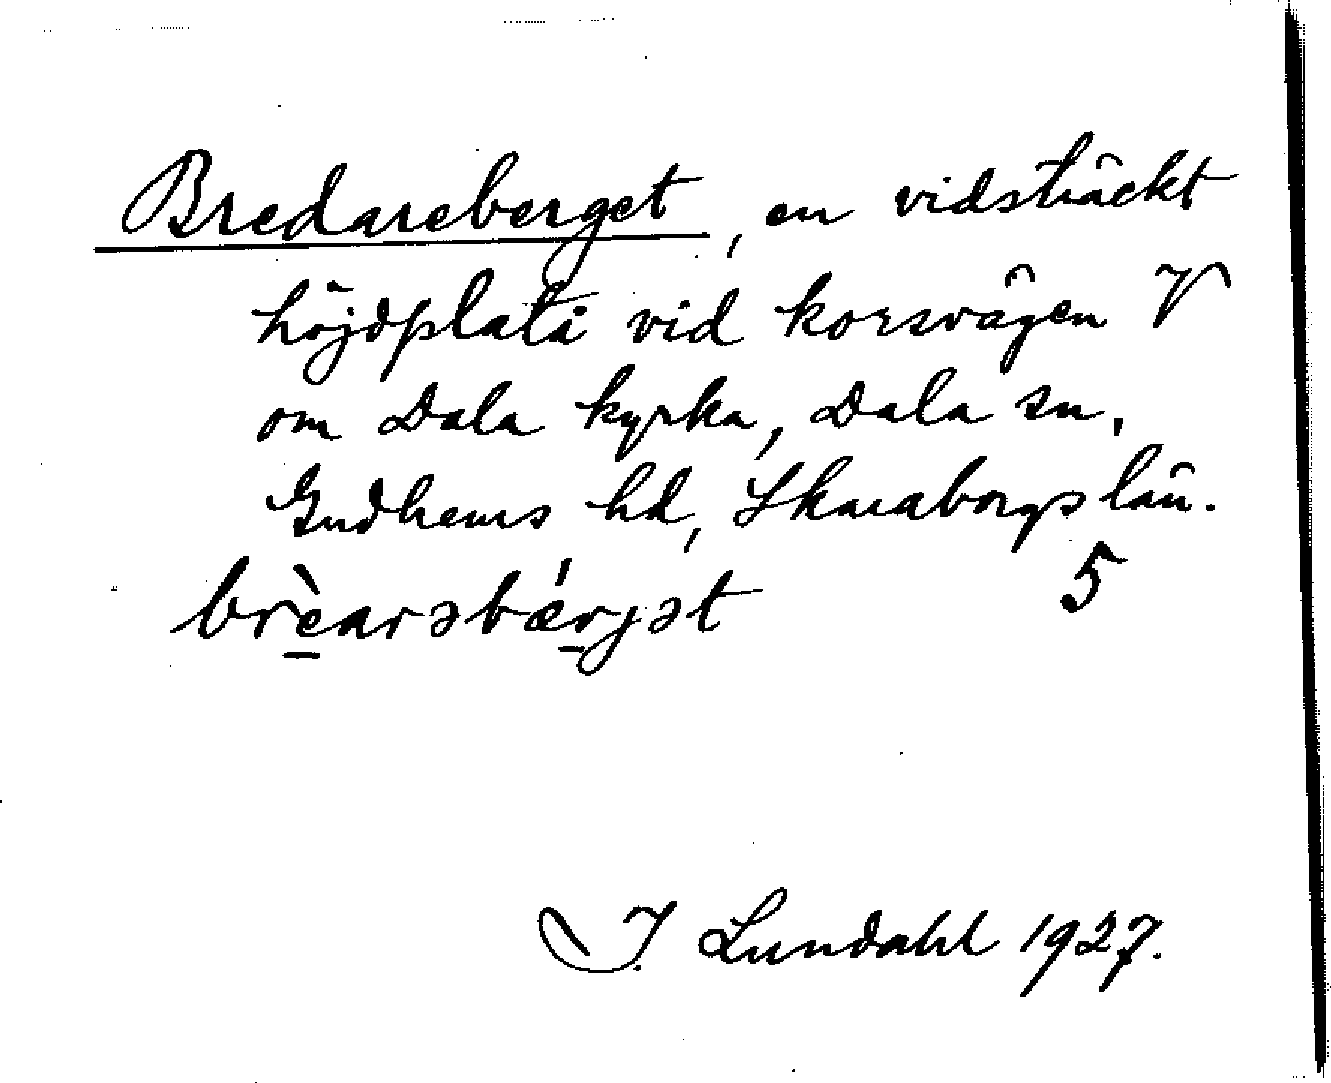 Bredareberget, en vidsträckt
höjdplatå vid korsvägen V
om Dala kyrka, Dala sn,
Gudhems hd, Skaraborgs län.
brèarəbǽrjət 5
I. Lundahl 1927.